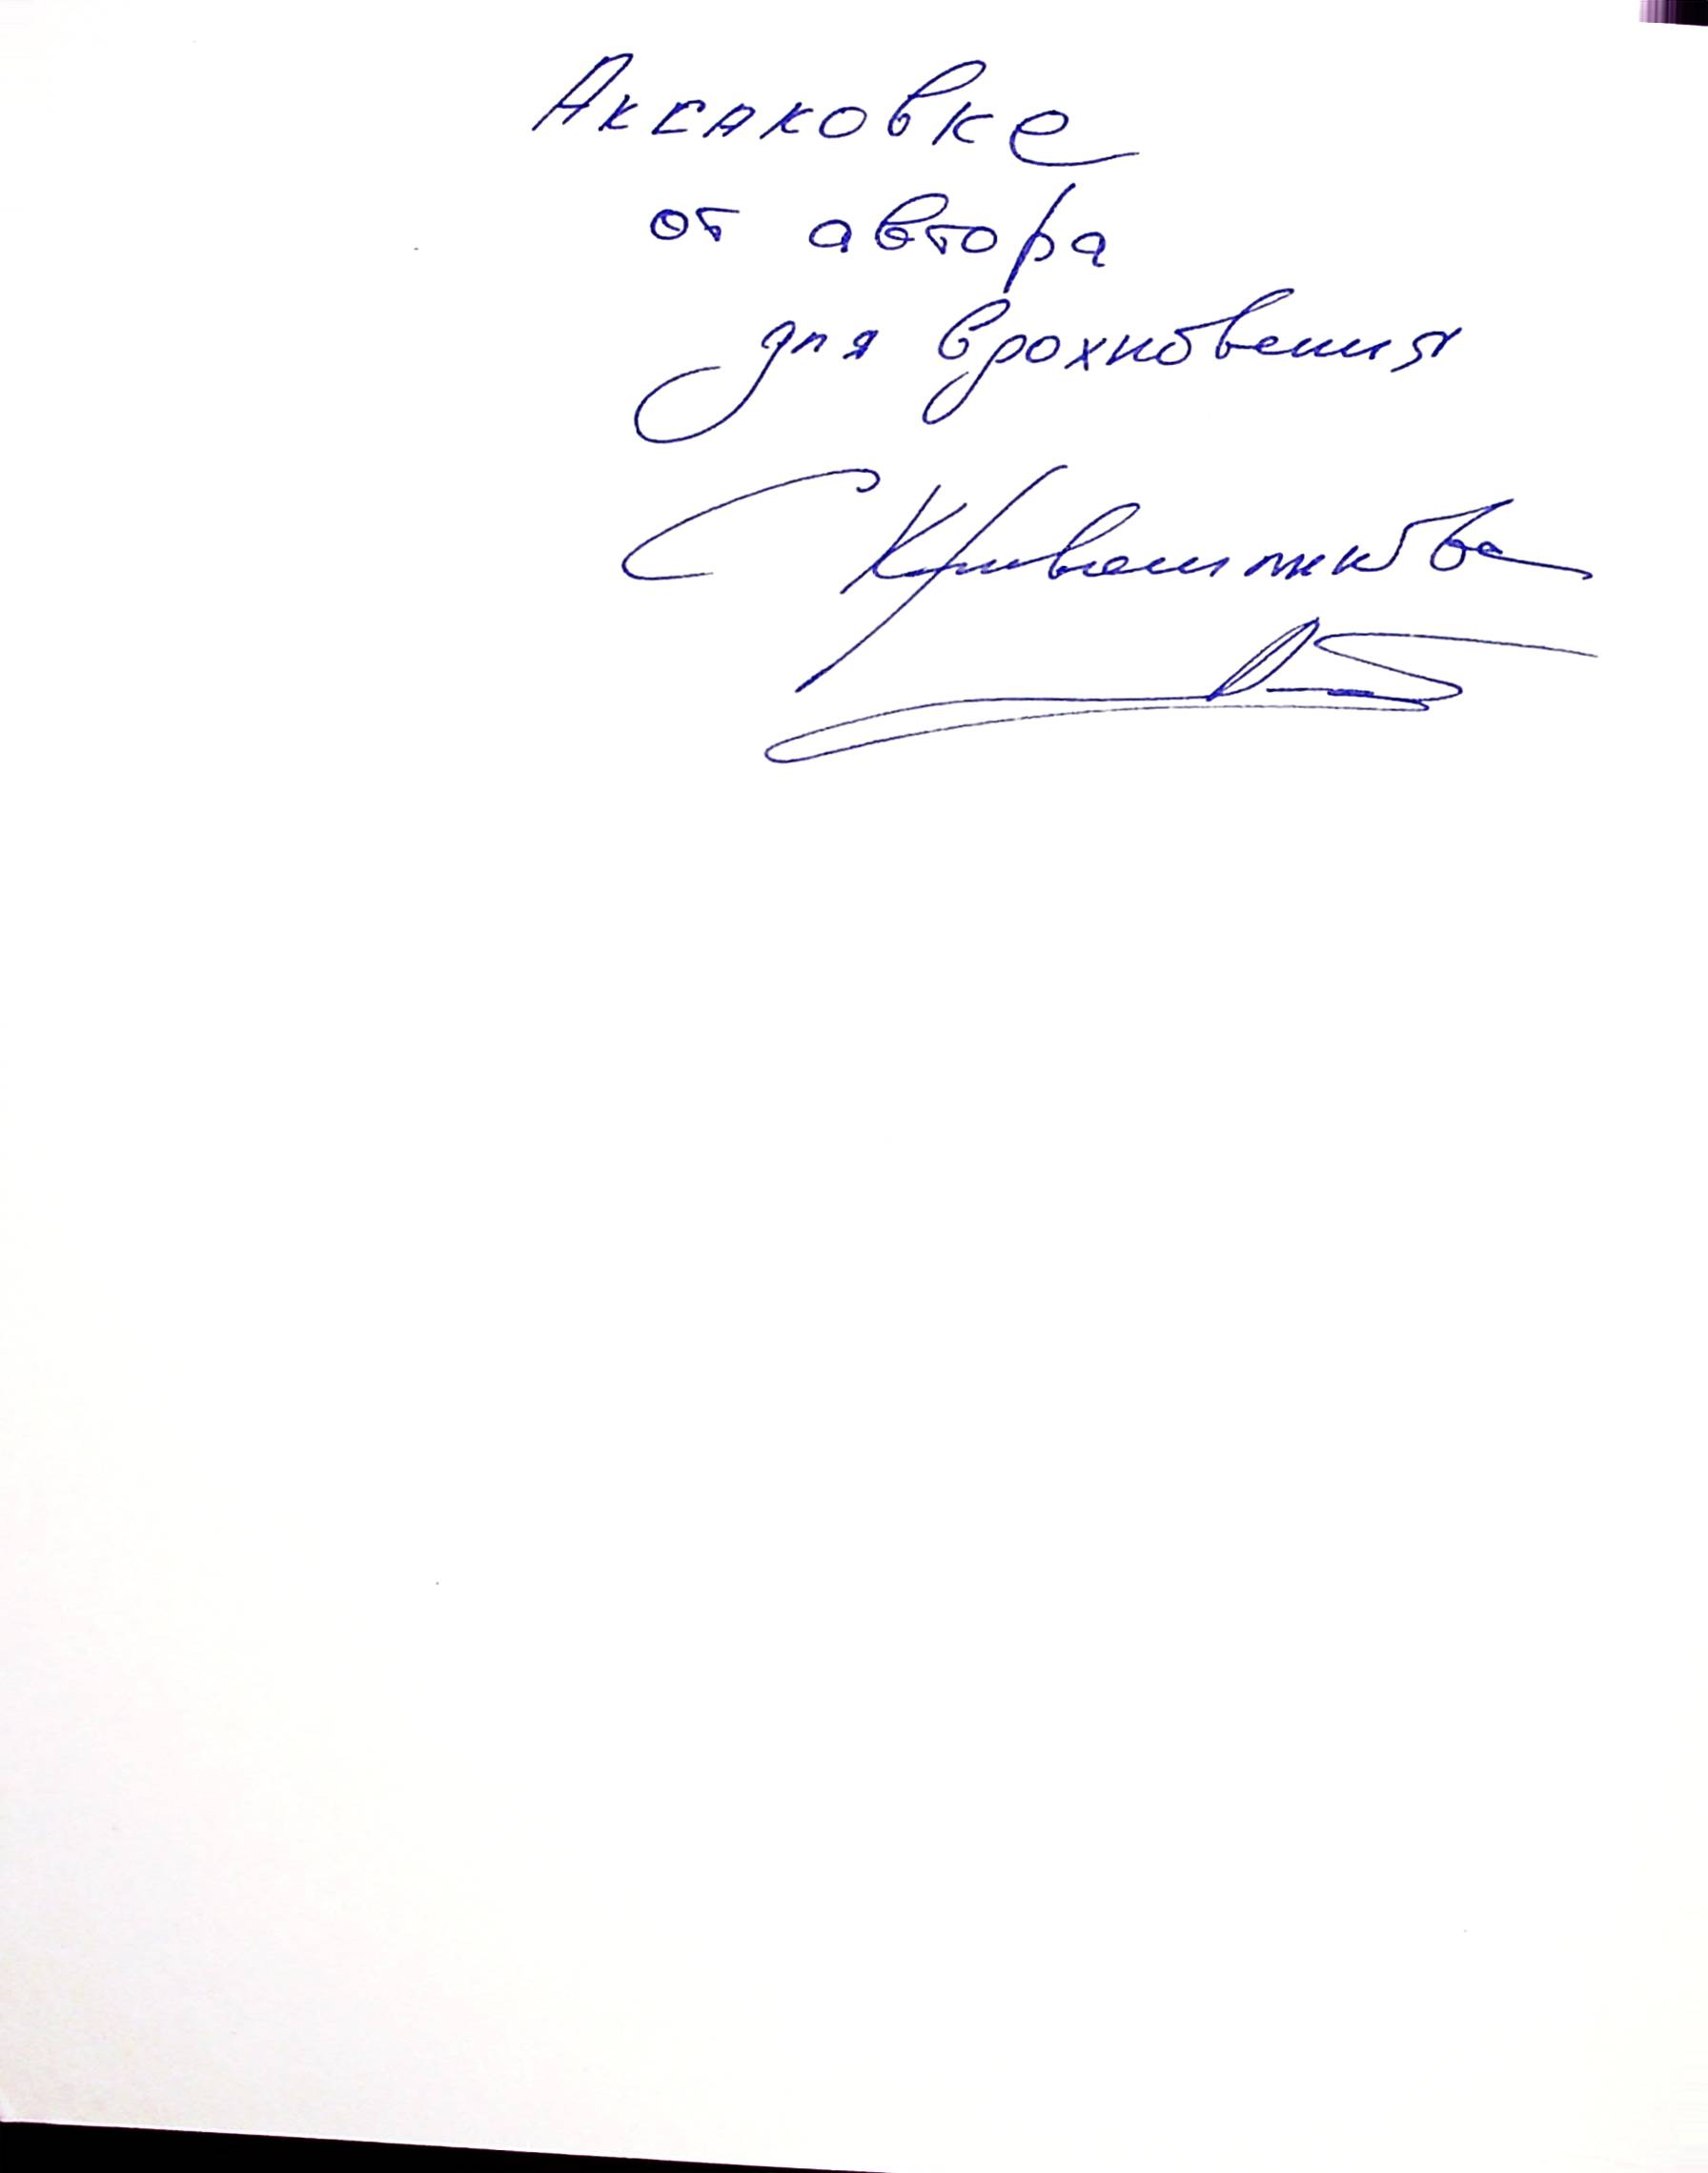 Аксаковке
от автора
для вдохновения
С Кривошапкова